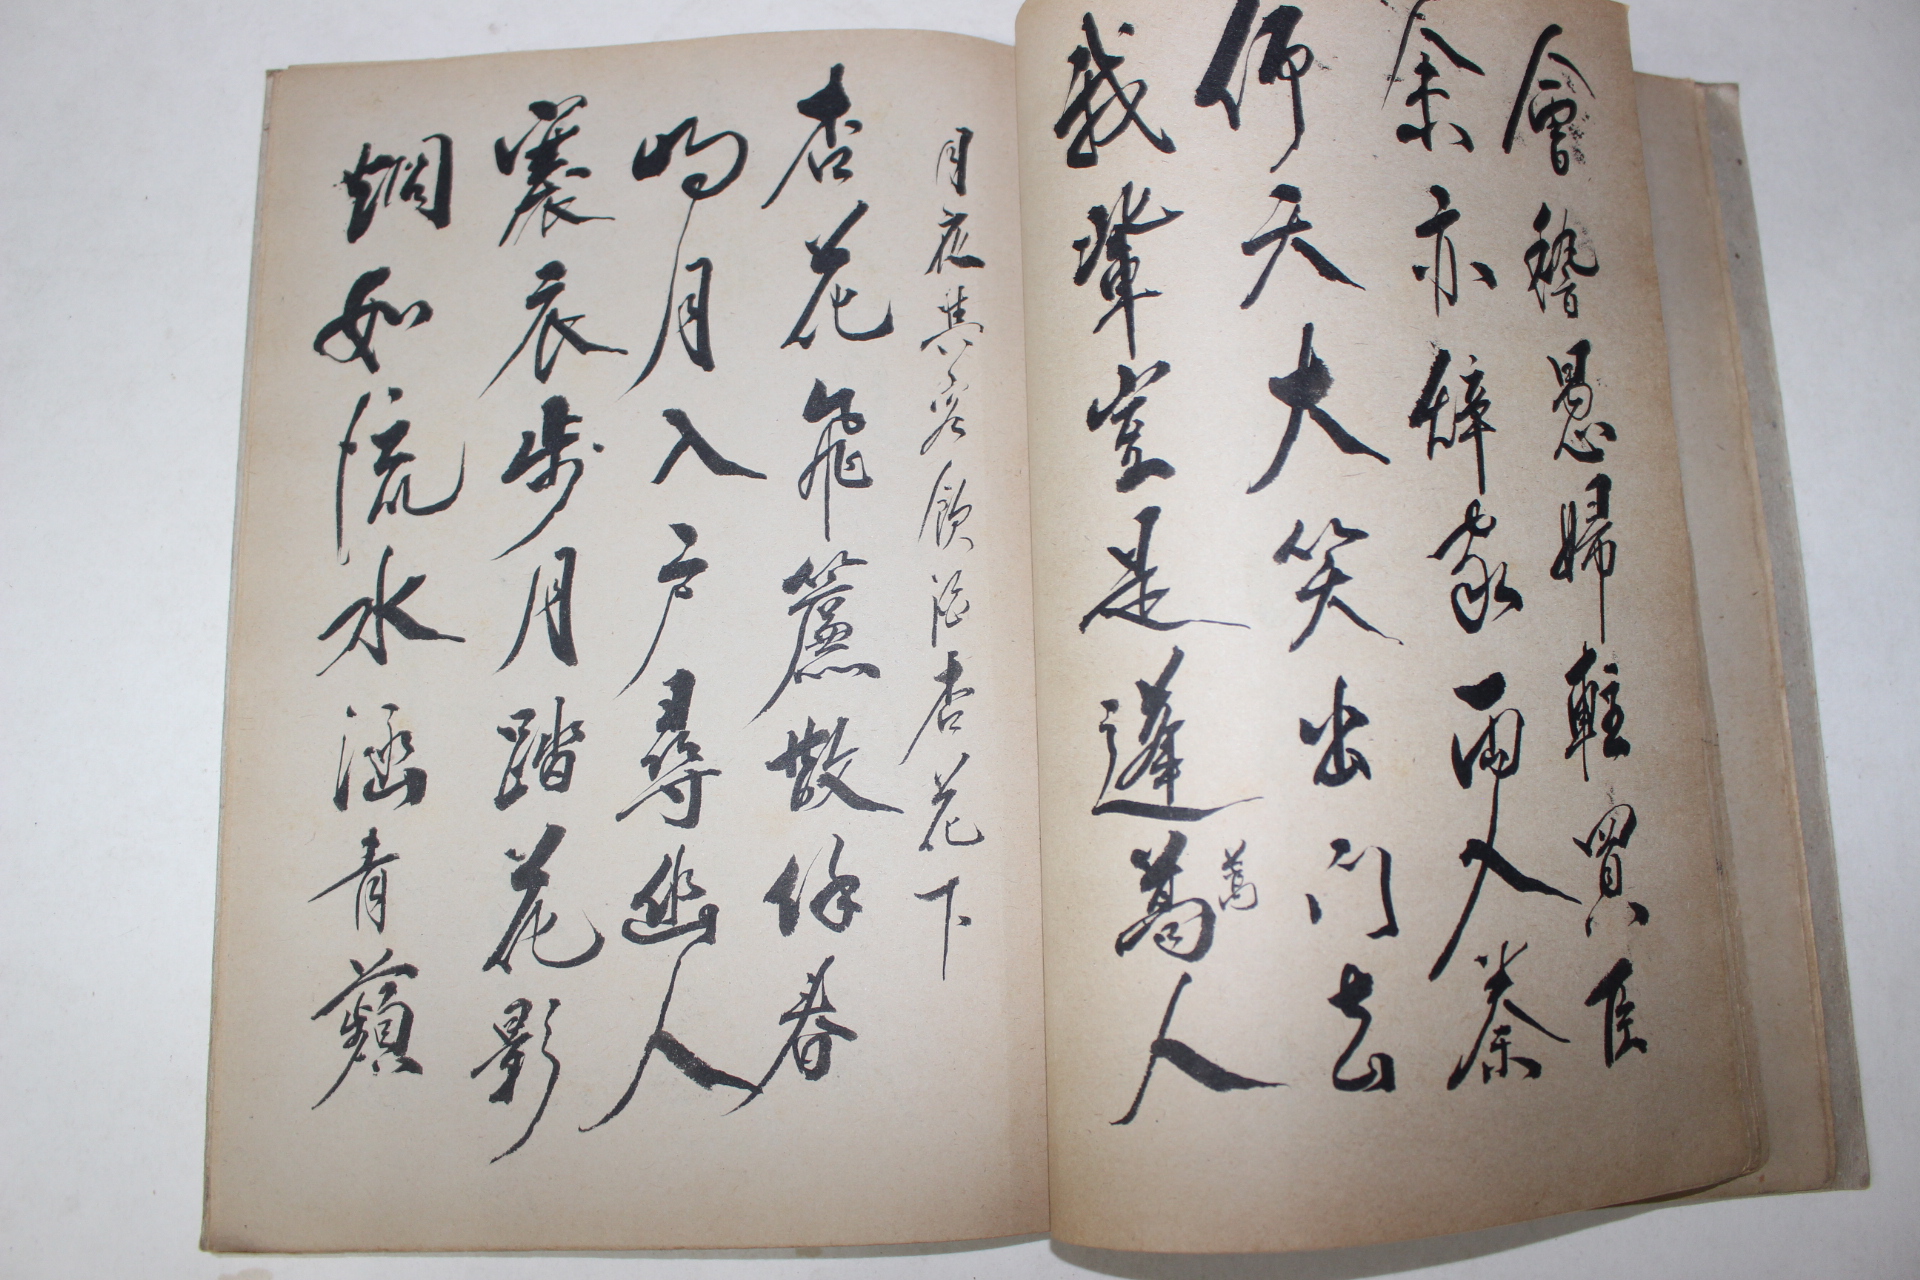 會稽愚婦輕買臣
余亦辭家西入秦
仰天大笑出門去
我輩豈是蓬蒿人
蒿
月夜與客飲酒杏花下
杏花飛簾散餘春
明月入戶尋幽人
褰衣步月踏花影
烱如流水涵青蘋